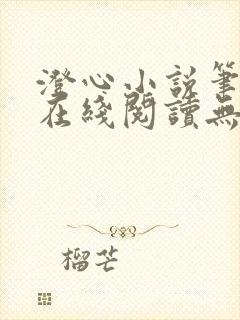 澄心小説筆
在綫閱讀無
榴芒